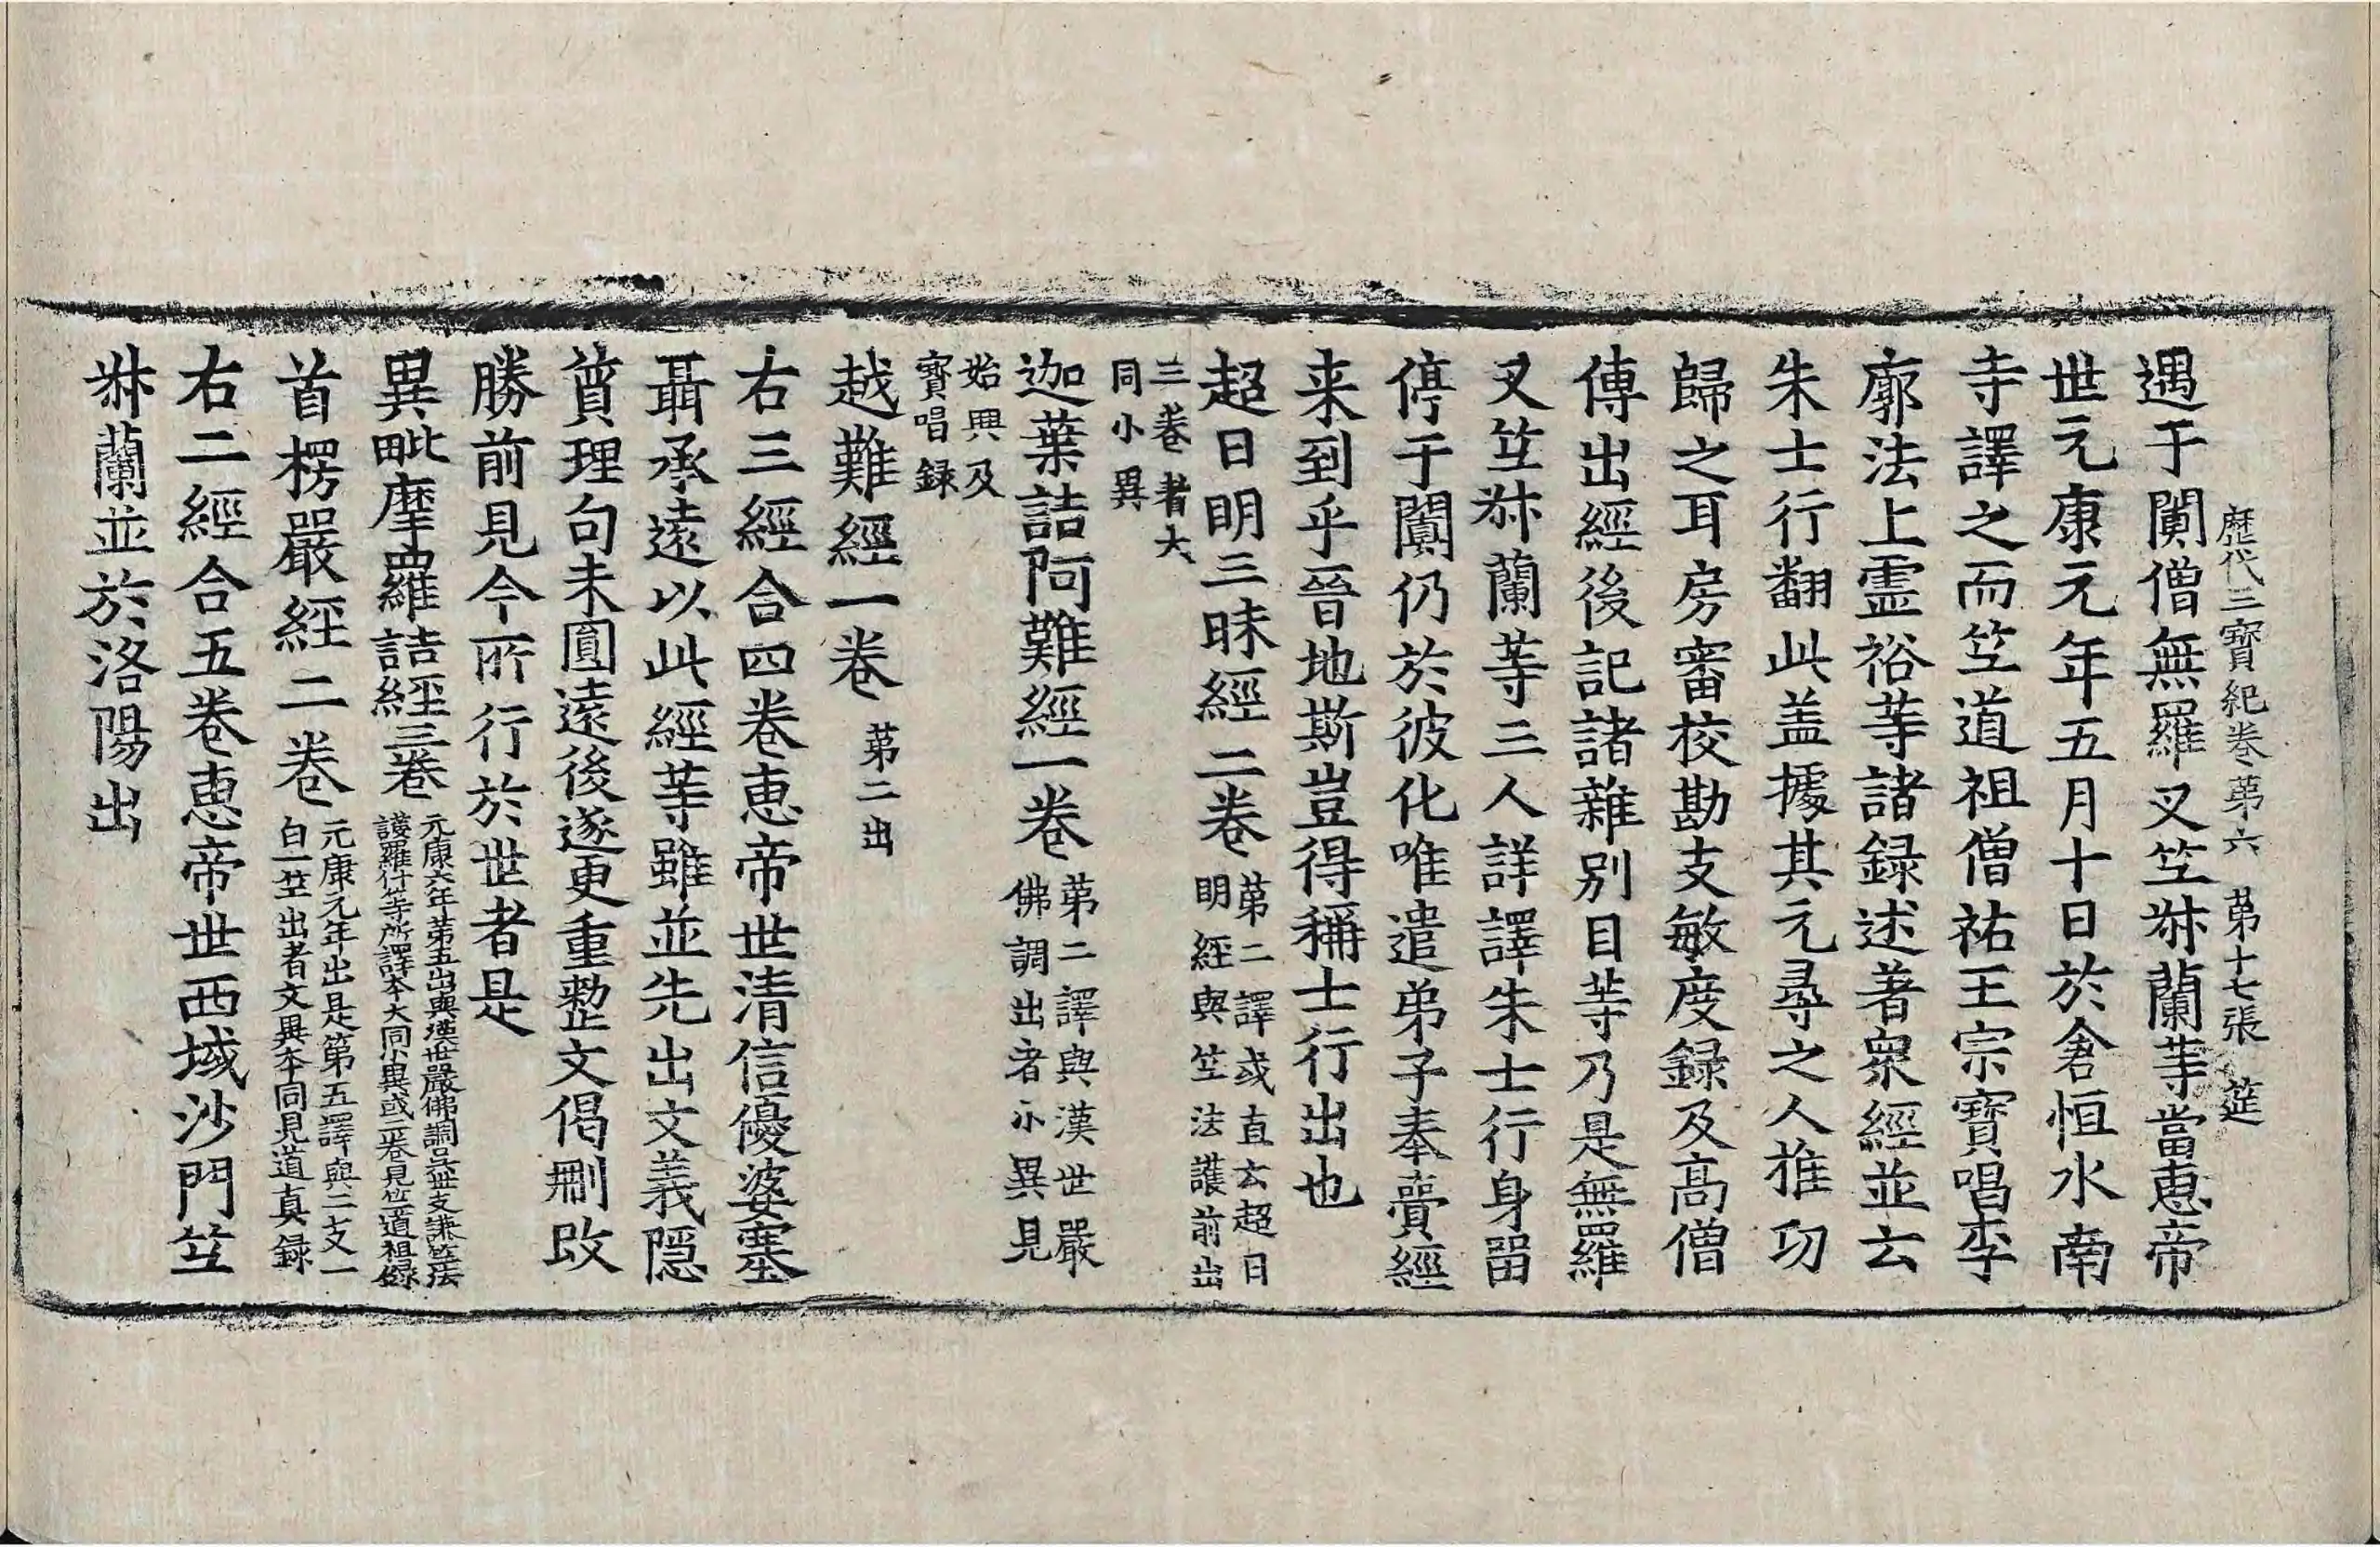 歷代三寶紀卷第六 第十七張 筵
遇于闐僧無羅叉竺𭀖蘭等當惠帝
世元康元年五月十日於倉恒水南
寺譯之而竺道祖僧祐王宗寶唱李
廓法上靈裕等諸録述著衆經並云
朱士行翻此盖據其元尋之人推㓛
歸之耳房審校勘支敏度録及高僧
傳出經後記諸雜別目等乃是無羅
叉竺𭀖蘭等三人詳譯朱士行身留
停于闐仍於彼化唯遣弟子奉賷經
来到乎晉地斯豈得稱士行出也
超日明三昧經二卷 第二譯或直云超日
明經與竺法護前出
三卷者大
同小異
迦葉詰阿難經一卷 第二譯與漢世嚴
佛調出者小異見
始興及
寶唱録
越難經一卷 第二出
右三經合四卷惠帝世清信優婆塞
聶承遠以此經等雖並先出文義隱
質理句未圓遠後遂更重整文偈刪改
勝前見今所行於世者是
異毗摩羅詰經三卷 元康六年第五出與漢世嚴佛調吳世支謙竺法
護羅什等所譯本大同小異或二卷見竺道祖録
首楞嚴經二卷 元康元年出是第五譯與二支一
白一竺出者文異本同見道真録
右二經合五卷惠帝世西域沙門竺
𭀖蘭並於洛陽出